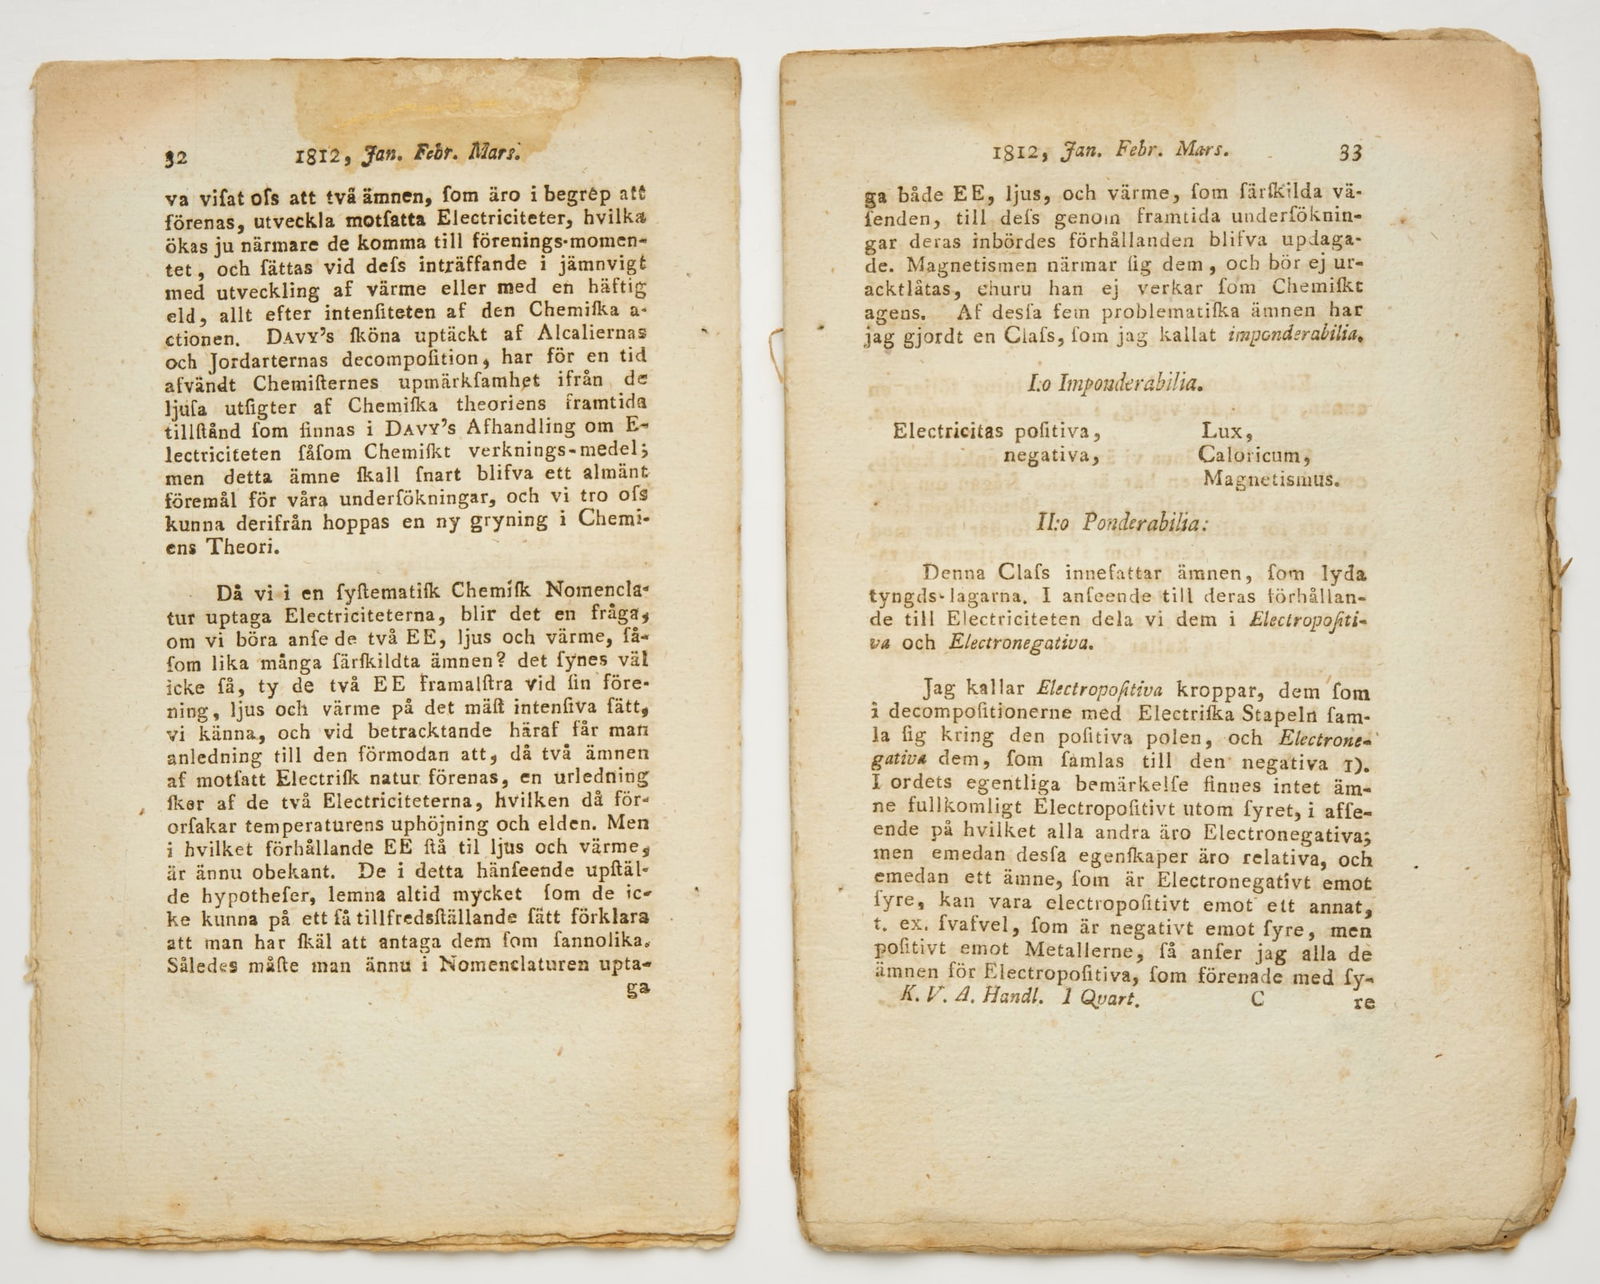 32 1812, Jan. Febr. Mars.
va viſat oſs att två ämnen, ſom äro i begrep att
förenas, utveckla motſatta Electriciteter, hvilka
ökas ju närmare de komma till förenings-momen-
tet, och ſättas vid deſs inträffande i jämnvigt
med utveckling af värme eller med en häftig
eld, allt efter intenſiteten af den Chemiſka a-
ctionen. DAVY'S ſköna uptäckt af Alcaliernas
och Jordarternas decompoſition, har för en tid
afvändt Chemiſternes upmärkſamhet ifrån de
ljuſa utſigter af Chemiſka theoriens framtida
tillſtånd ſom finnas i DAVY's Afhandling om E-
lectriciteten ſåſom Chemiſkt verknings-medel;
men detta ämne ſkall ſnart blifva ett almänt
föremål för våra underſökningar, och vi tro oſs
kunna derifrån hoppas en ny gryning i Chemi-
ens Theori.
Då vi i en ſyſtematiſk Chemiſk Nomencla-
tur uptaga Electriciteterna, blir det en fråga,
om vi böra anſe de två EE, ljus och värme, ſå-
ſom lika många ſärſkildta ämnen? det ſynes väl
icke ſå, ty de två EE framalſtra vid ſin före-
ning, ljus och värme på det mäſt intenſiva ſätt,
vi känna, och vid betracktande häraf får man
anledning till den förmodan att, då två ämnen
af motſatt Electriſk natur förenas, en urledning
ſker af de två Electriciteterna, hvilken då för-
orſakar temperaturens uphöjning och elden. Men
i hvilket förhållande EE ſtå til ljus och värme,
är ännu obekant. De i detta hänſeende upſtäl-
de hypotheſer, lemna altid mycket ſom de ic-
ke kunna på ett ſå tillfredsſtällande ſätt förklara
att man har ſkäl att antaga dem ſom ſannolika.
Således måſte man ännu i Nomenclaturen upta-
ga
1812, Jan. Febr. Mars. 33
ga både EE, ljus, och värme, ſom ſärſkilda vä-
ſenden, till deſs genom framtida underſöknin-
gar deras inbördes förhållanden blifva updaga-
de. Magnetismen närmar ſig dem, och bör ej ur-
acktlåtas, ehuru han ej verkar ſom Chemiſkt
agens. Af desſa fem problematiſka ämnen har
jag gjordt en Claſs, ſom jag kallat imponderabilia.
I:o Imponderabilia.
Electricitas poſitiva, Lux,
negativa, Caloricum,
Magnetismus.
II:o Ponderabilia:
Denna Claſs innefattar ämnen, ſom lyda
tyngds-lagarna. I anſeende till deras förhållan-
de till Electriciteten dela vi dem i Electropoſiti-
va och Electronegativa.
Jag kallar Electropoſitiva kroppar, dem ſom
i decompoſitionerne med Electriſka Stapeln ſam-
la ſig kring den poſitiva polen, och Electrone-
gativa dem, ſom ſamlas till den negativa 1).
I ordets egentliga bemärkelſe finnes intet äm-
ne fullkomligt Electropoſitivt utom ſyret, i affe-
ende på hvilket alla andra äro Electronegativa;
men emedan desſa egenſkaper äro relativa, och
emedan ett ämne, ſom är Electronegativt emot
ſyre, kan vara electropoſitivt emot ett annat,
t. ex. ſvafvel, ſom är negativt emot ſyre, men
poſitivt emot Metallerne, ſå anſer jag alla de
ämnen för Electropoſitiva, ſom förenade med ſy-
K. V. A. Handl. 1 Qvart. C re